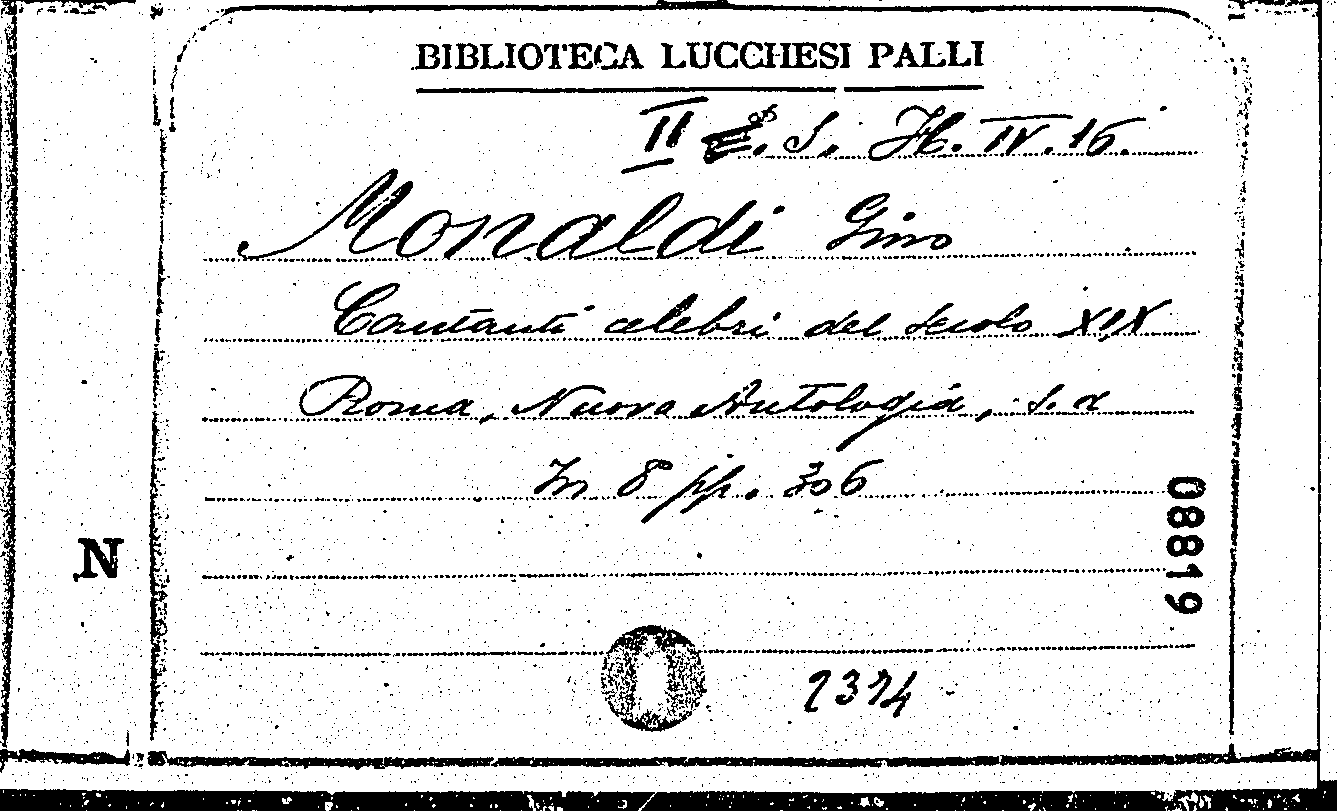 BIBLIOTECA LUCCHESI PALLI
II S. H. IV. 16.
Monaldi Gino
Cantanti celebri del secolo XIX
Roma, Nuova Antologia, s. d
In 8 pp. 306
08819
N
2374